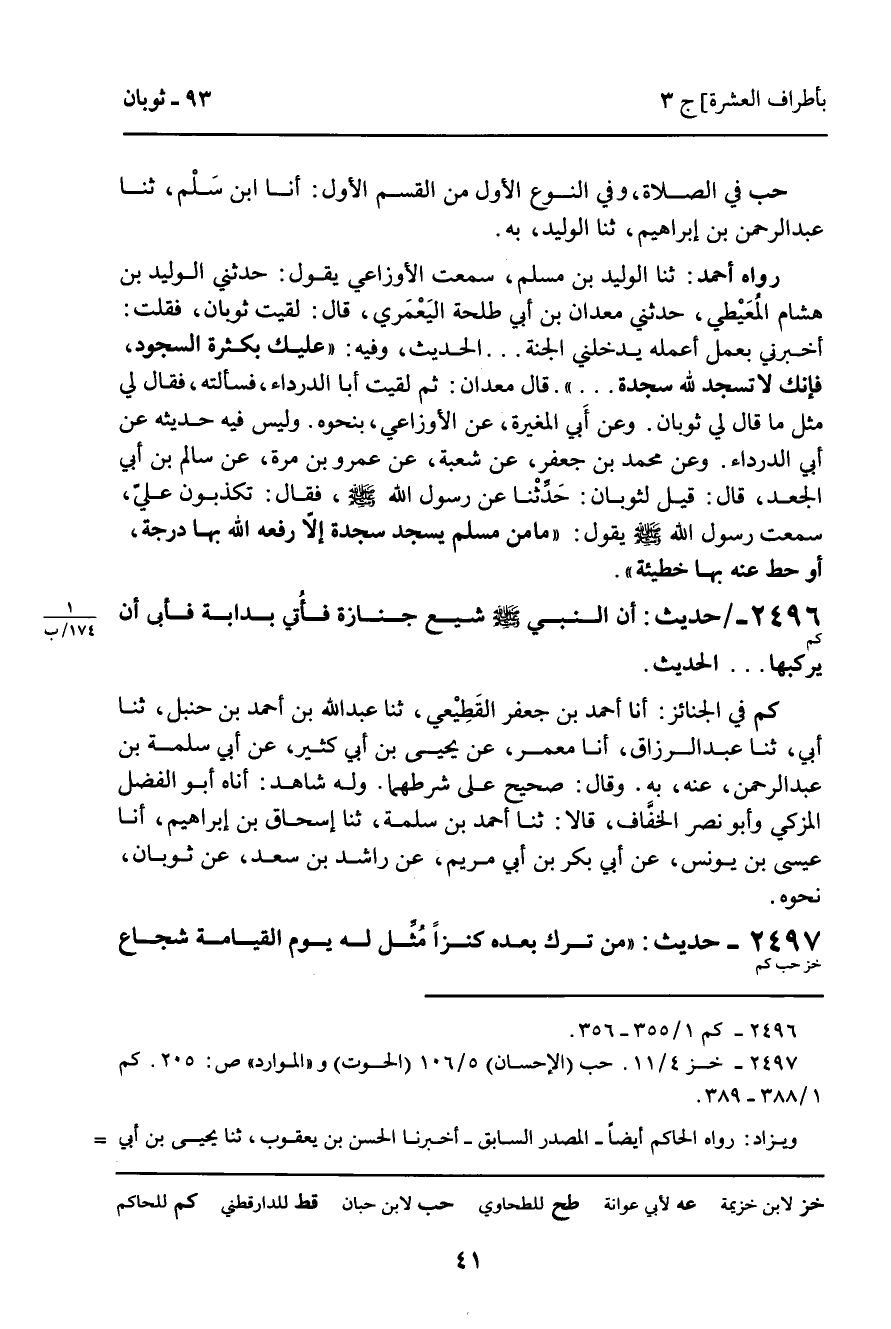 بأطراف العشرة] ج ٣
٩٣ ـ ثوبان
حب في الصـلاة، وفي النـوع الأول من القسم الأول: أنـا ابن سَلْم، ثنـا
عبدالرحمن بن إبراهيم، ثنا الوليد، به.
رواه أحمد: ثنا الوليد بن مسلم، سمعت الأوزاعي يقول: حدثني الوليد بن
هشام المُعَيْطي، حدثني معدان بن أبي طلحة اليَعْمَري، قال: لقيت ثوبان، فقلت:
أخبرني بعمل أعمله يدخلني الجنة... الحديث، وفيه: «عليك بكثرة السجود،
فإنك لا تسجد لله سجدة...». قال معدان: ثم لقيت أبا الدرداء، فسألته، فقال لي
مثل ما قال لي ثوبان. وعن أَبي المغيرة، عن الأوزاعي، بنحوه. وليس فيه حديثه عن
أبي الدرداء. وعن محمد بن جعفر، عن شعبة، عن عمرو بن مرة، عن سالم بن أبي
الجعد، قال: قيل لثوبان: حَدِّثْنا عن رسول الله ﷺ، فقال: تكذبون عليّ،
سمعت رسول الله ﷺ يقول: «مامن مسلم يسجد سجدة إلّا رفعه الله بها درجة،
أو حط عنه بها خطيئة».
٢٤٩٦ـ/ حديث: أن النبي ﷺ شيع جنازة فأُتي بدابة فأبى أن
١
١٧٤/ب
كم
يركبها... الحديث.
كم في الجنائز: أنا أحمد بن جعفر القَطِيْعي، ثنا عبدالله بن أحمد بن حنبل، ثنا
أبي، ثنا عبدالرزاق، أنا معمر، عن يحيى بن أبي كثير، عن أبي سلمة بن
عبدالرحمن، عنه، به. وقال: صحيح على شرطهما. وله شاهد: أناه أبو الفضل
المزكي وأبو نصر الخفَّاف، قالا: ثنا أحمد بن سلمة، ثنا إسحاق بن إبراهيم، أنا
عيسى بن يونس، عن أبي بكر بن أبي مريم، عن راشد بن سعد، عن ثوبان،
نحوه.
٢٤٩٧ ـ حديث: «من ترك بعده كنزاً مُثِّل له يوم القيامة شجاع
خز حب كم
٢٤٩٦ ـ كم ١/ ٣٥٥ ـ ٣٥٦.
٢٤٩٧ ـ خز ٤/ ١١. حب (الإحسان) ٥/ ١٠٦ (الحوت) و «الموارد» ص: ٢٠٥. كم
١/ ٣٨٨ ـ ٣٨٩.
ويزاد: رواه الحاكم أيضاً ـ المصدر السابق ـ أخبرنا الحسن بن يعقوب، ثنا يحيى بن أبي =
خز لابن خزيمة عه لأبي عوانة طح للطحاوي حب لابن حبان قط للدارقطني كم للحاكم
٤١